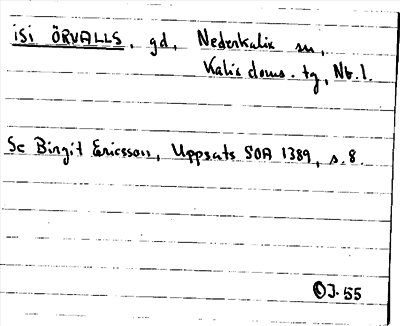 iSi ÖRVALLS, gd, Nederkalix sn,
Kalix doms. tg, Nb. l.
Se Birgit Ericsson, Uppsats SOA 1389, s. 8.
J. 55